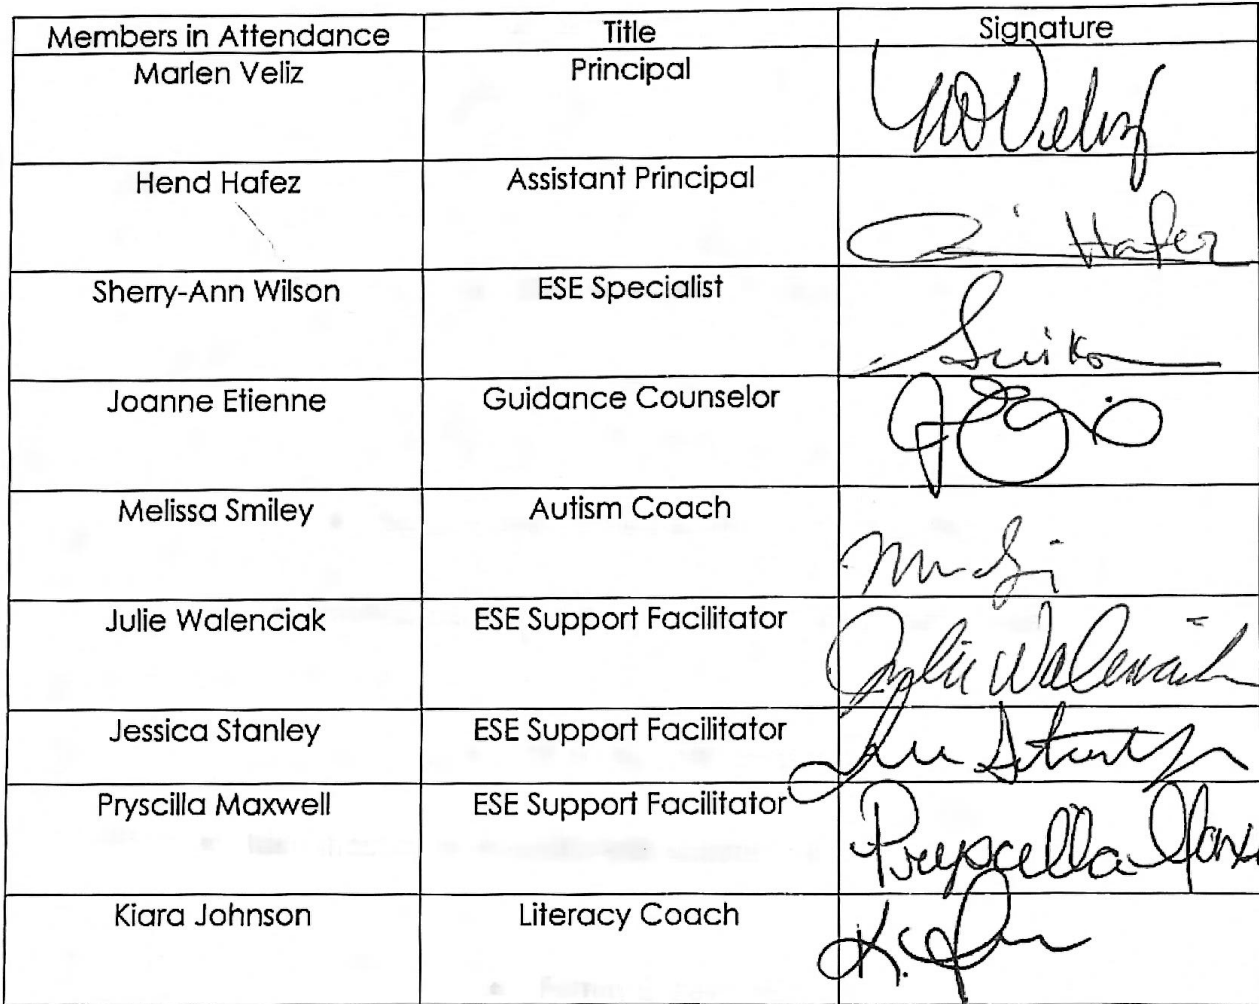 Members in Attendance Title Signature
Marlen Veliz Principal
Hend Hafez Assistant Principal Hafez
Sherry-Ann Wilson ESE Specialist
Joanne Etienne Guidance Counselor
Melissa Smiley Autism Coach
Julie Walenciak ESE Support Facilitator Julie Walenciak
Jessica Stanley ESE Support Facilitator
Pryscilla Maxwell ESE Support Facilitator Pryscilla
Kiara Johnson Literacy Coach K.